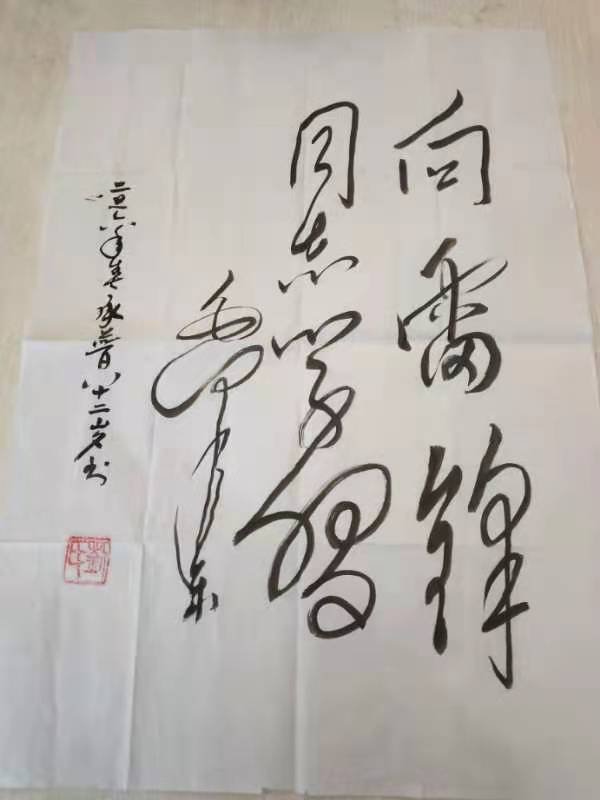 向雷锋
同志学习
毛泽东
二〇一六年春承普八十二岁书
刘印